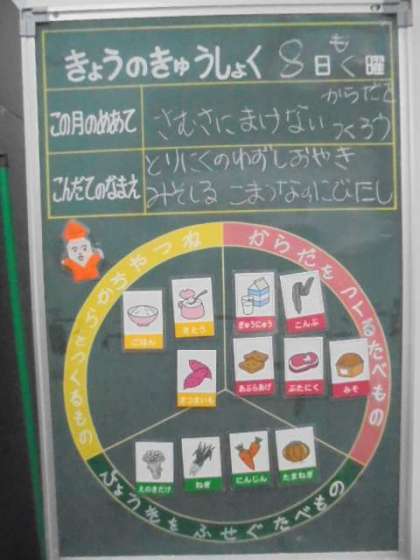 きょうのきゅうしょく 8日 もく 曜
この月のめあて
さむさにまけない からだを つくろう
こんだてのなまえ
とりにくのゆずしおやき
みそしる こまつなのにびたし
ねつやちからをつくるもの
からだをつくるたべもの
びょう気をふせぐたべもの
ごはん
さとう
ぎゅうにゅう
こんぶ
さつまいも
あぶらあげ
ぶたにく
みそ
えのきだけ
ねぎ
にんじん
たまねぎ